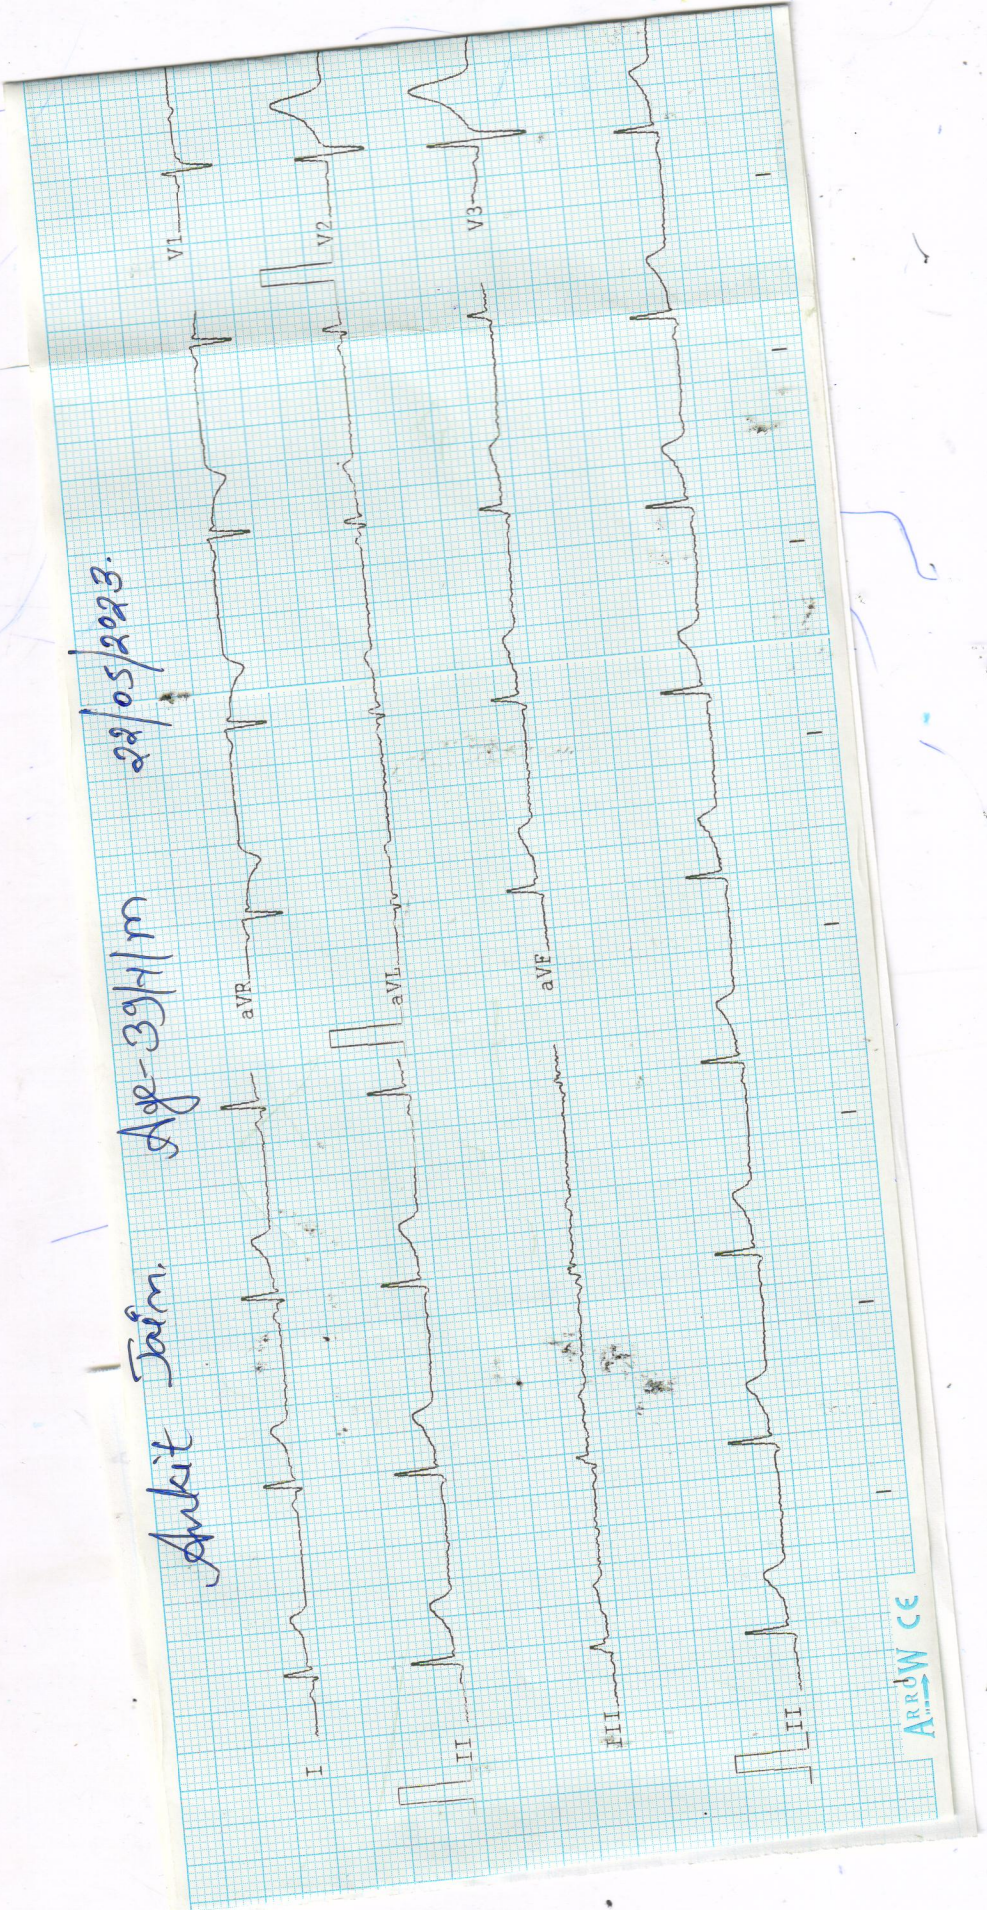 Ankit Jain. Age-39/y/m 22/05/2023.
I aVR V1
II aVL V2
III aVF V3
II
ARROW CE